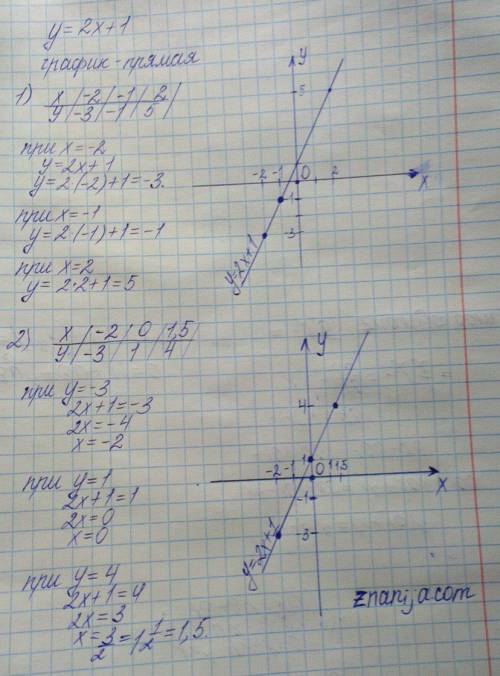 y = 2x+1
график - прямая
1) x | -2 | -1 | 2
y | -3 | -1 | 5 |
при x = -2
y = 2x+1
y = 2·(-2)+1 = -3.
при x = -1
y = 2·(-1)+1 = -1
при x = 2
y = 2·2+1 = 5
y
5
-2 -1 0 2
x
-1
-3
y=2x+1
2) x | -2 | 0 | 1,5
y | -3 | 1 | 4 |
при y = -3
2x+1 = -3
2x = -4
x = -2
при y = 1
2x+1 = 1
2x = 0
x = 0
при y = 4
2x+1 = 4
2x = 3
x = 3/2 = 1 1/2 = 1,5.
y
4
1
-2 -1 0 1 1,5
x
-1
-3
y=2x+1
znanija.com